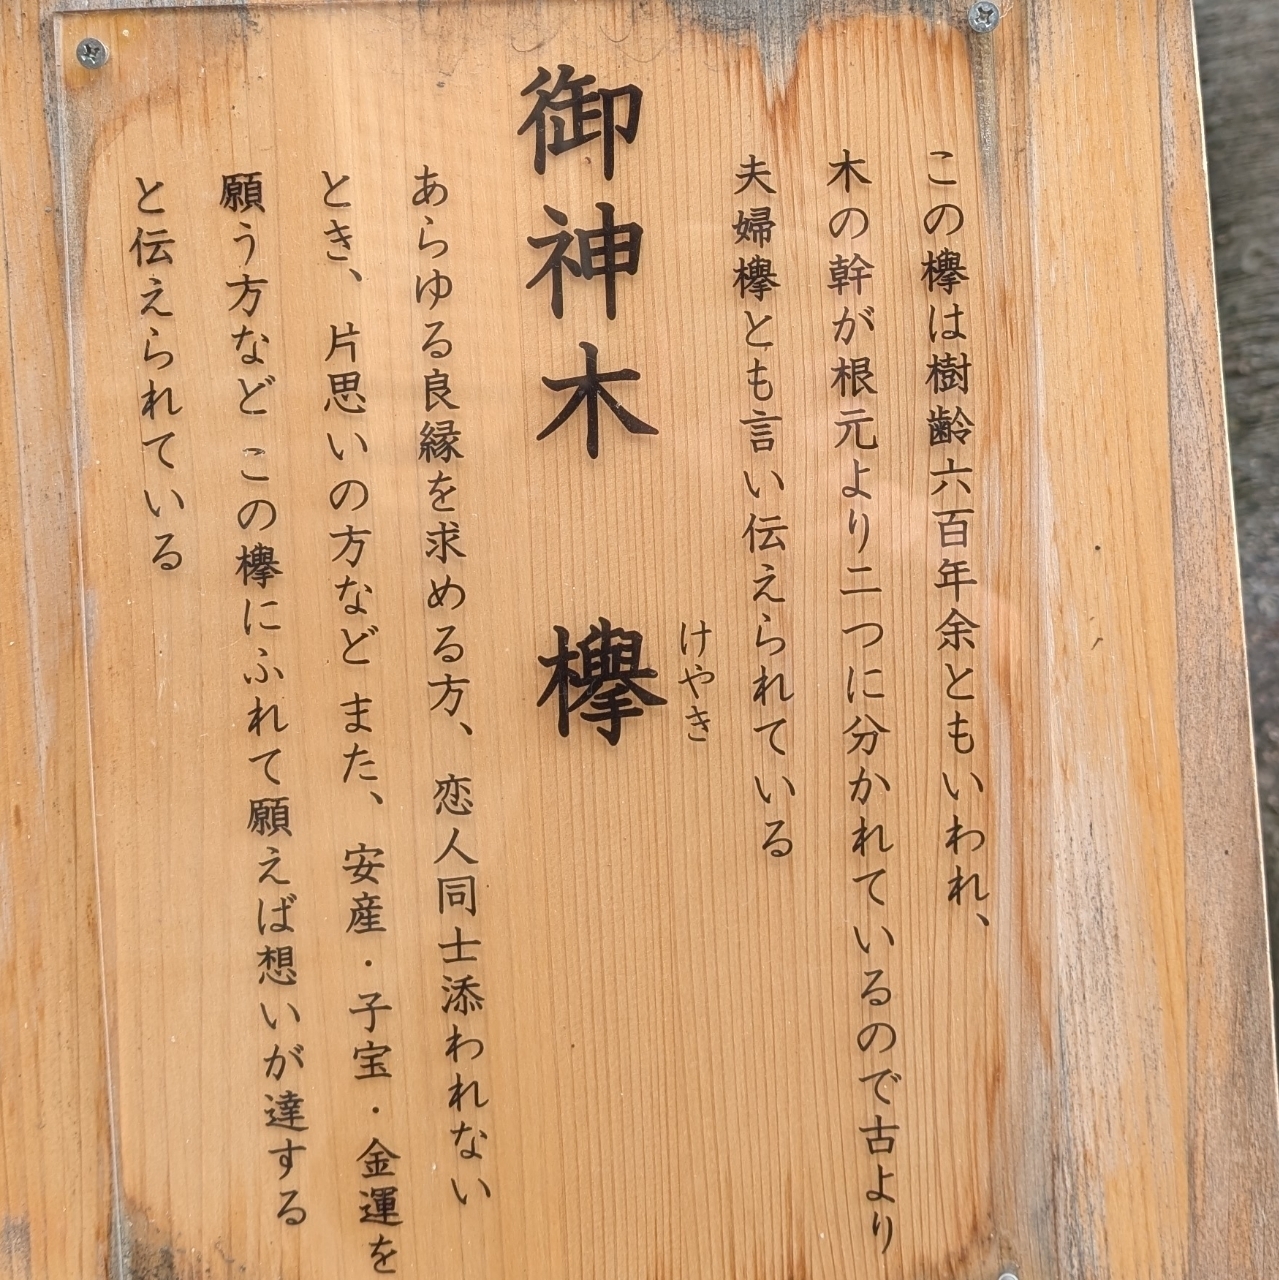 この欅は樹齢六百年余ともいわれ、
木の幹が根元より二つに分かれているので古より
夫婦欅とも言い伝えられている
けやき
御神木 欅
あらゆる良縁を求める方、恋人同士添われない
とき、片思いの方など また、安産・子宝・金運を
願う方など この欅にふれて願えば想いが達する
と伝えられている